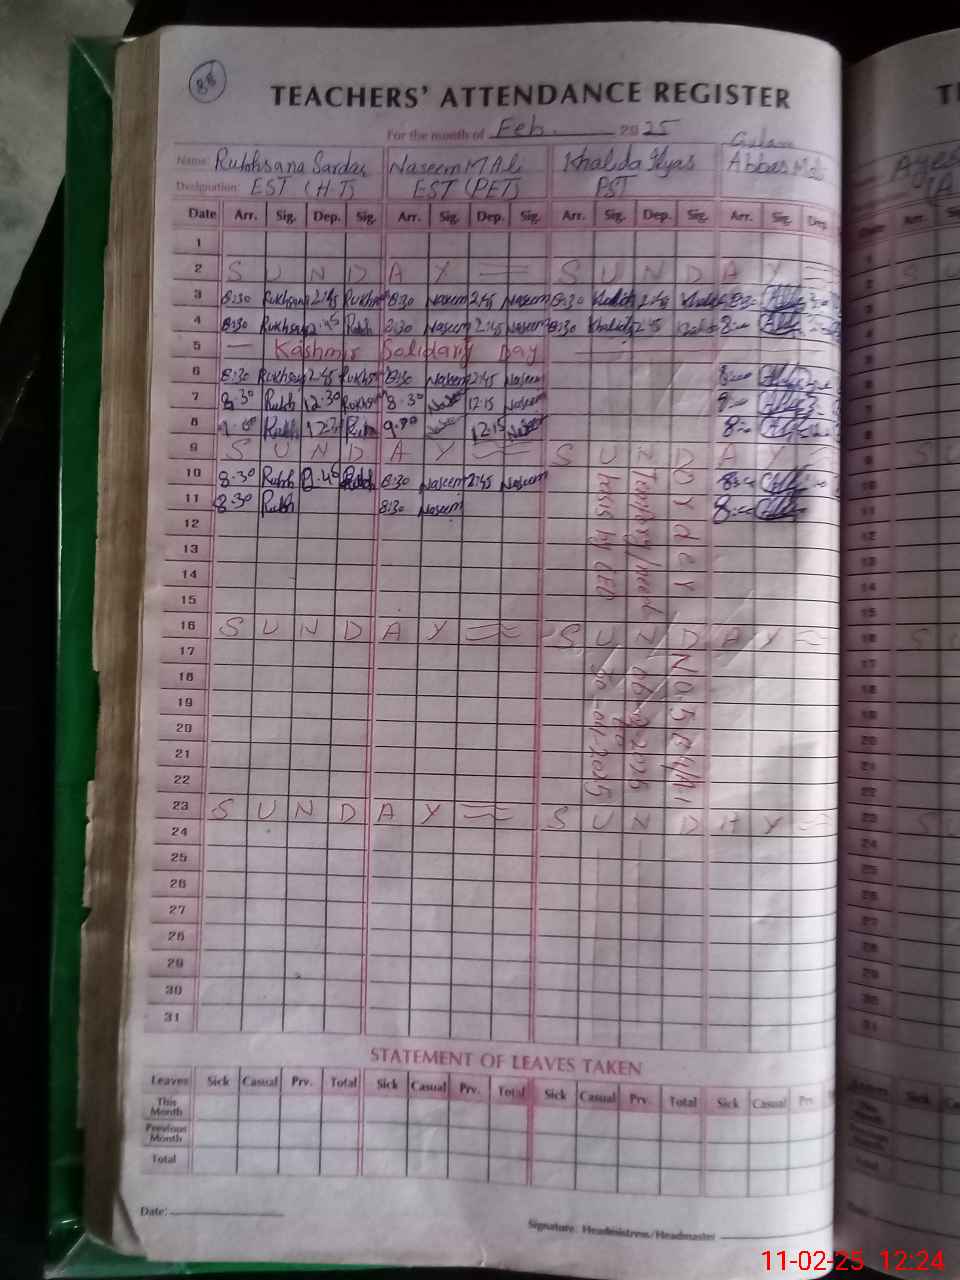 88
TEACHERS' ATTENDANCE REGISTER
For the month of Feb. 2025
Name: Rukhsana Sardar Naseem M Ali Khalida Ilyas Gulam Abbas Mali
Designation: EST (HT) EST (PET) PST
Date Arr. Sig. Dep. Sig. Arr. Sig. Dep. Sig. Arr. Sig. Dep. Sig. Arr. Sig. Dep
1
2 S U N D A Y S U N D A Y
3 8:30 Rukhsana 2:45 Rukhsana 8:30 Naseem 2:45 Naseem 8:30 Khalida 2:45 Khalida 8:30
4 8:30 Rukhsana 2:45 Rukh 8:30 Naseem 2:45 Naseem 8:30 Khalida 2:45 Khalida 8:00
5 Kashmir Solidary Day
6 8:30 Rukhsana 2:45 Rukhsana 8:30 Naseem 2:45 Naseem 8:00
7 8.30 Rukh 12.30 Rukhsana 8.30 Naseem 12.15 Naseem
8 9.00 Rukh Rukh 9.00 12.15 Naseem 8:00
9 S U N D A Y S U N D A Y
10 8.30 Rukh 2.45 Rukh 8:30 Naseem 2:45 Naseem 8:00
11 8.30 Rukh 8:30 Naseem 8:00
12
13
14
15
16 S U N D A Y S U N D A Y
17
18
19
20
21
22
23 S U N D A Y S U N D A Y
24
25
26
27
28
29
30
31
Order No.
by CEO
STATEMENT OF LEAVES TAKEN
Leaves Sick Casual Prv. Total Sick Casual Prv. Total Sick Casual Prv. Total Sick Casual Prv.
This Month
Previous Month
Total
Date:
Signature: Headmistress/Headmaster
11-02-25 12:24